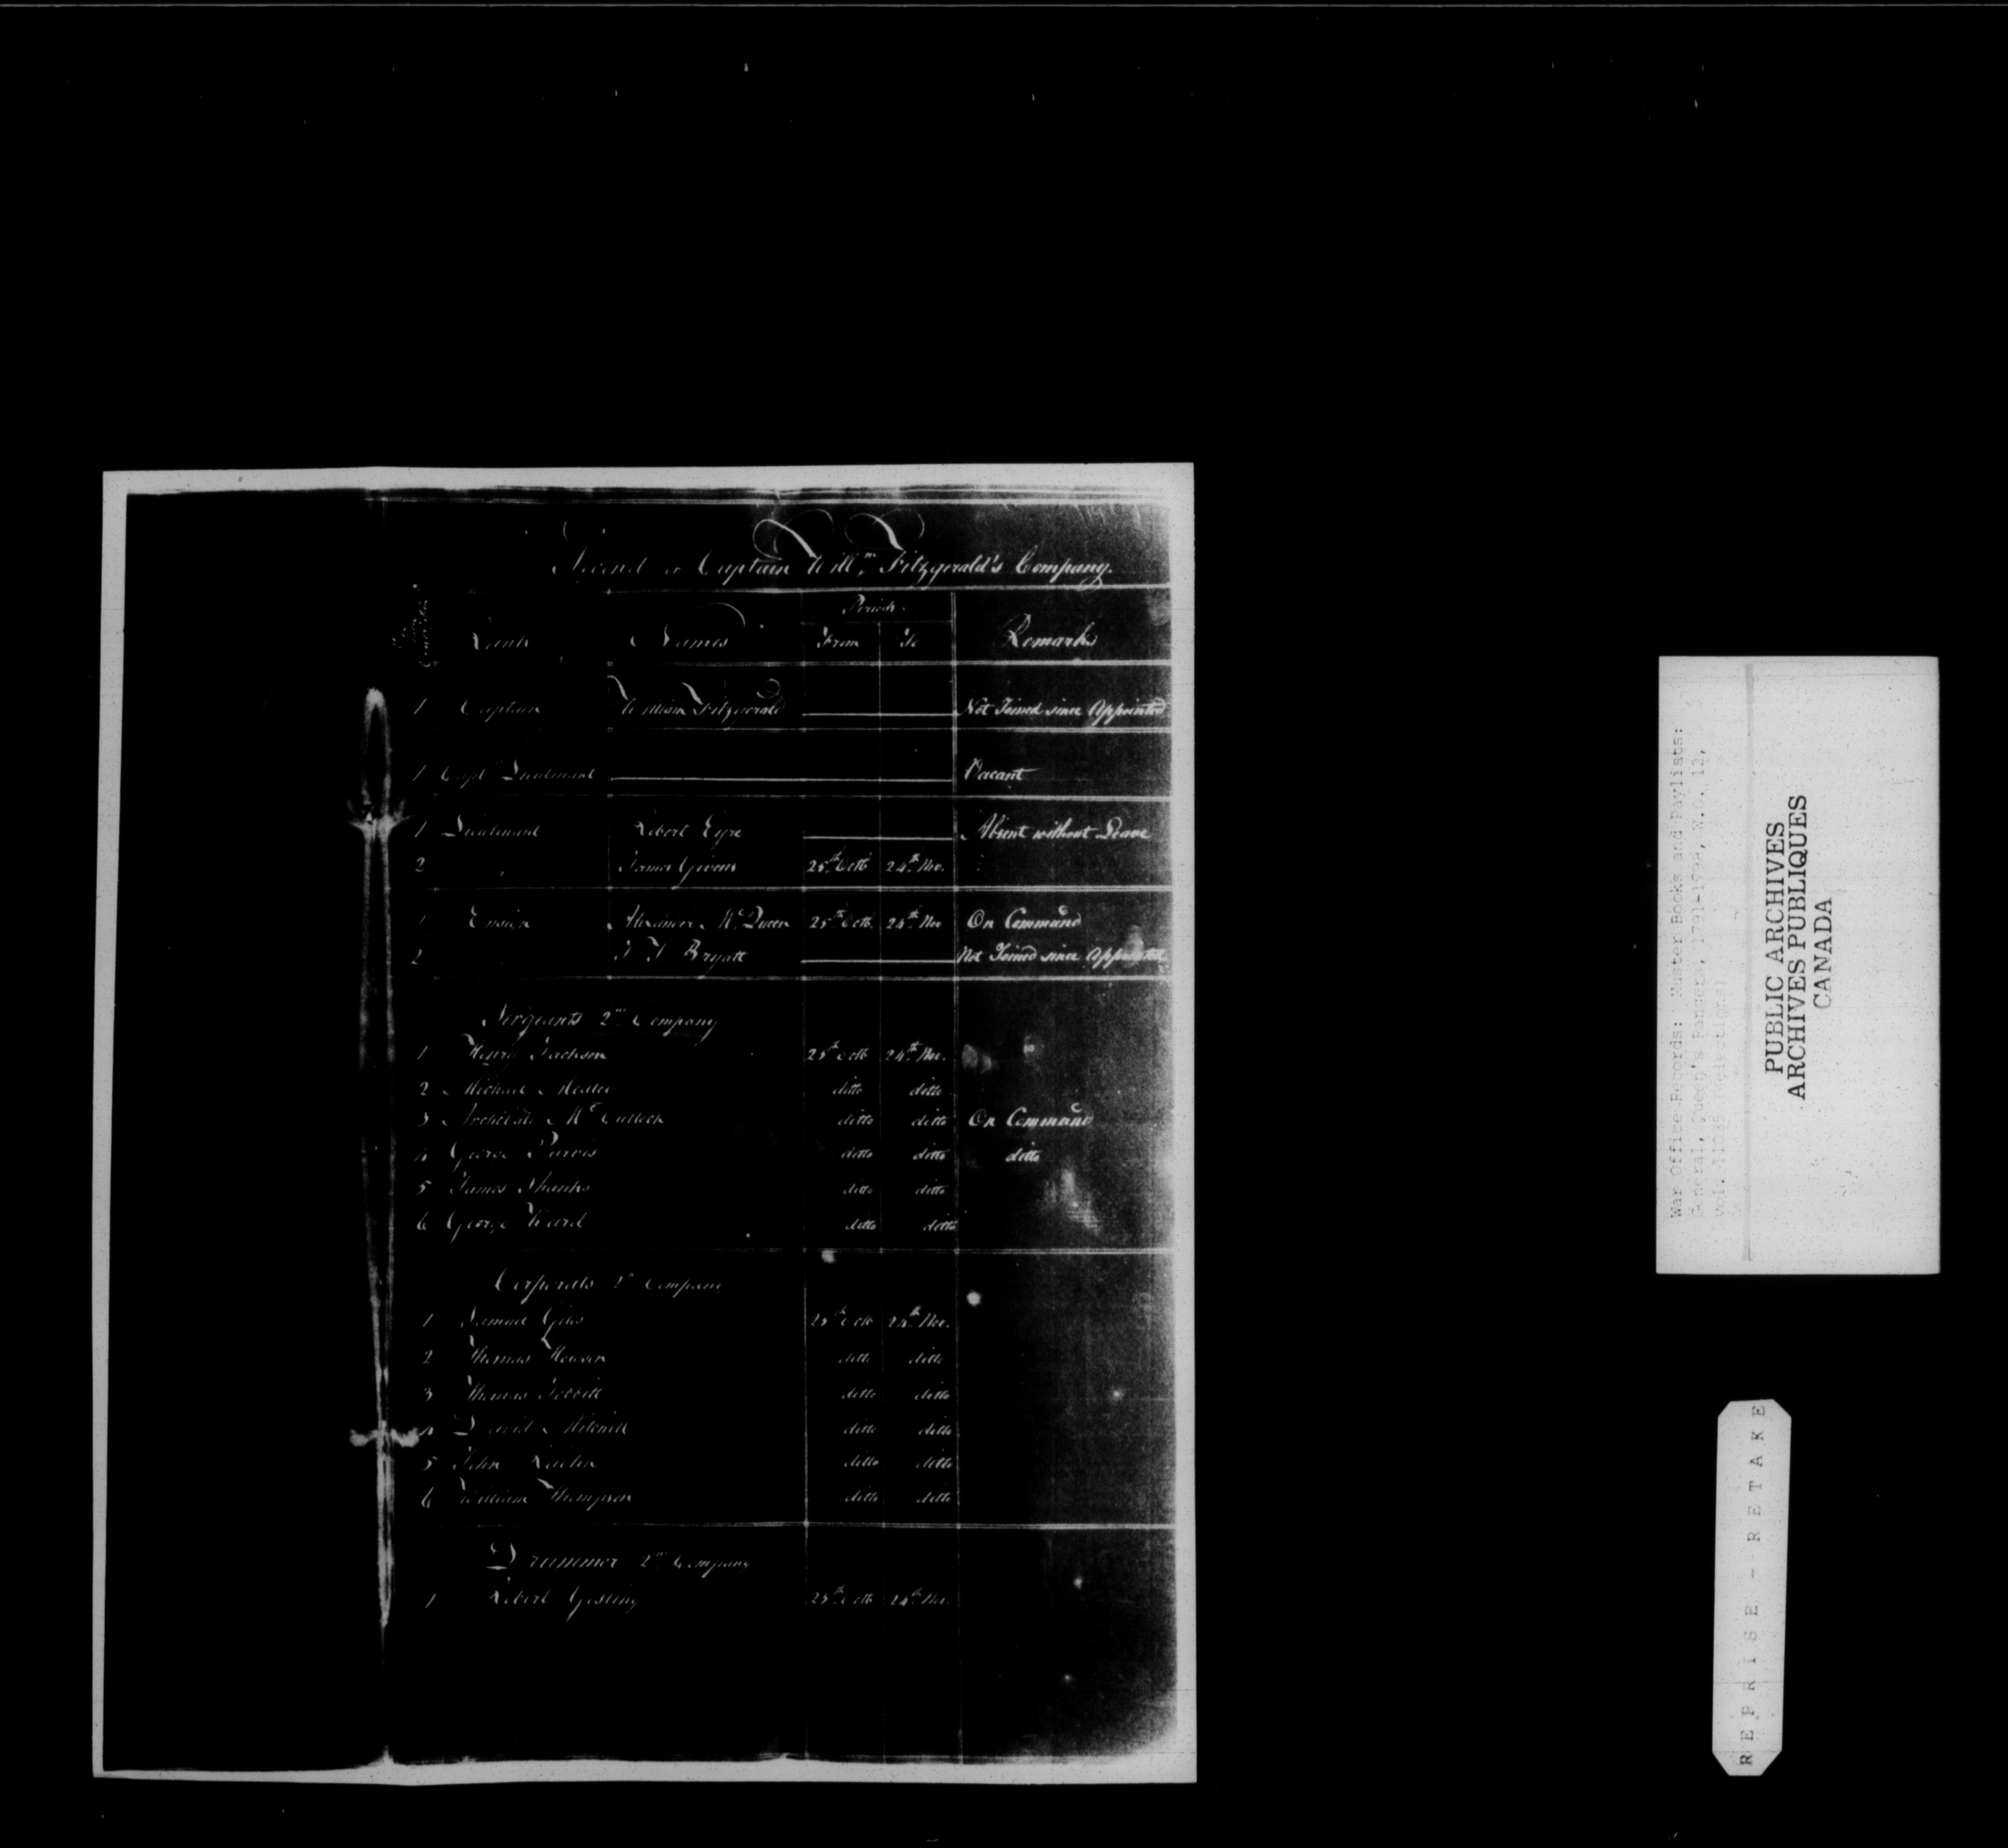 Second or Captain Will.m Fitzgerald's Company.
Periods
Rank Names From To Remarks
1 Captain William Fitzgerald Not Joined since Appointed
1 Capt.n Lieutenant Vacant
1 Lieutenant Robert Eyre Absent without Leave
2 " James Givens 25th Octb. 24th Nov.
1 Ensign Alexander McQueen 25th Octb. 24th Nov. On Command
2 Not Joined since Appointed
Sergeants 2nd Company
1 Henry Jackson 25th Octb. 24th Nov.
2 Michael ditto ditto
3 Archibald McCulloch ditto ditto On Command
4 George Purvis ditto ditto ditto
5 James Shanks ditto ditto
6 George Ward ditto ditto
Corporals 2nd Company
1 Samuel Giles 25th Octb. 24th Nov.
2 Thomas ditto ditto
3 Thomas ditto ditto
4 David Mitchell ditto ditto
5 John ditto ditto
6 William Thompson ditto ditto
Drummer 2nd Company
1 Robert Gosling 25th Octb. 24th Nov.
War Office Records: Muster Books and Paylists:
General, Queen's Rangers, 1791-1798, W.O. 12,
vol.
PUBLIC ARCHIVES
ARCHIVES PUBLIQUES
CANADA
REPRISE - RETAKE